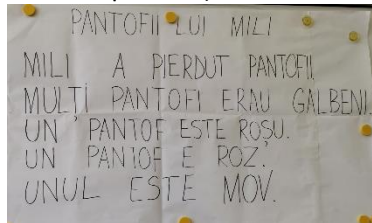 PANTOFII LUI MILI
MILI A PIERDUT PANTOFII.
MULȚI PANTOFI ERAU GALBENI.
UN PANTOF ESTE ROȘU.
UN PANTOF E ROZ.
UNUL ESTE MOV.